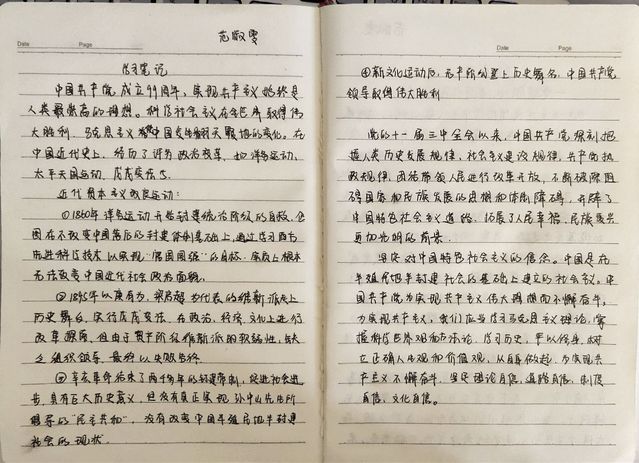 Date Page
学习笔记
中国共产党成立99周年，实现共产主义始终是
人类最崇高的理想。科学社会主义在全世界取得伟
大胜利，马克思主义使中国发生翻天覆地的变化。在
中国近代史上，经历了许多政治变革，如洋务运动、
太平天国运动、戊戌变法等。
近代资本主义改良运动：
①1860年洋务运动开始封建统治阶级的自救，企
图在不改变中国落后的封建体制基础上，通过学习西方
先进科学技术以实现“富国图强”的目标，实质上根本
无法改变中国近代社会政治面貌。
②1895年以康有为、梁启超为代表的维新派登上
历史舞台，实行戊戌变法，在政治、经济、文化上进行
改革，但由于资产阶级维新派的软弱性，缺
乏组织领导，最终以失败告终。
③辛亥革命结束了两千多年的封建帝制，促进社会进
步，具有巨大历史意义，但没有真正实现孙中山先生所
倡导的“民主共和”，没有改变中国半殖民地半封建
社会的现状。
Date Page
④新文化运动后，无产阶级登上历史舞台，中国共产党
领导取得伟大胜利
党的十一届三中全会以来，中国共产党深刻把
握人类历史发展规律，社会主义建设规律，共产党执
政规律，团结带领人民进行改革开放，不断破除阻
碍国家和民族发展的思想和体制障碍，开辟了
中国特色社会主义道路，拓展了人民幸福、民族复兴
更加光明的前景。
坚定对中国特色社会主义的信念。中国是在
半殖民地半封建社会的基础上建立的社会主义。中
国共产党为实现共产主义伟大理想而不懈奋斗，
为实现共产主义，我们应当学习马克思主义理论，掌
握科学世界观和方法论，学习历史，严以修身，树
立正确人生观和价值观，从自身做起，为实现共
产主义不懈奋斗，坚定理论自信，道路自信，制度
自信，文化自信。